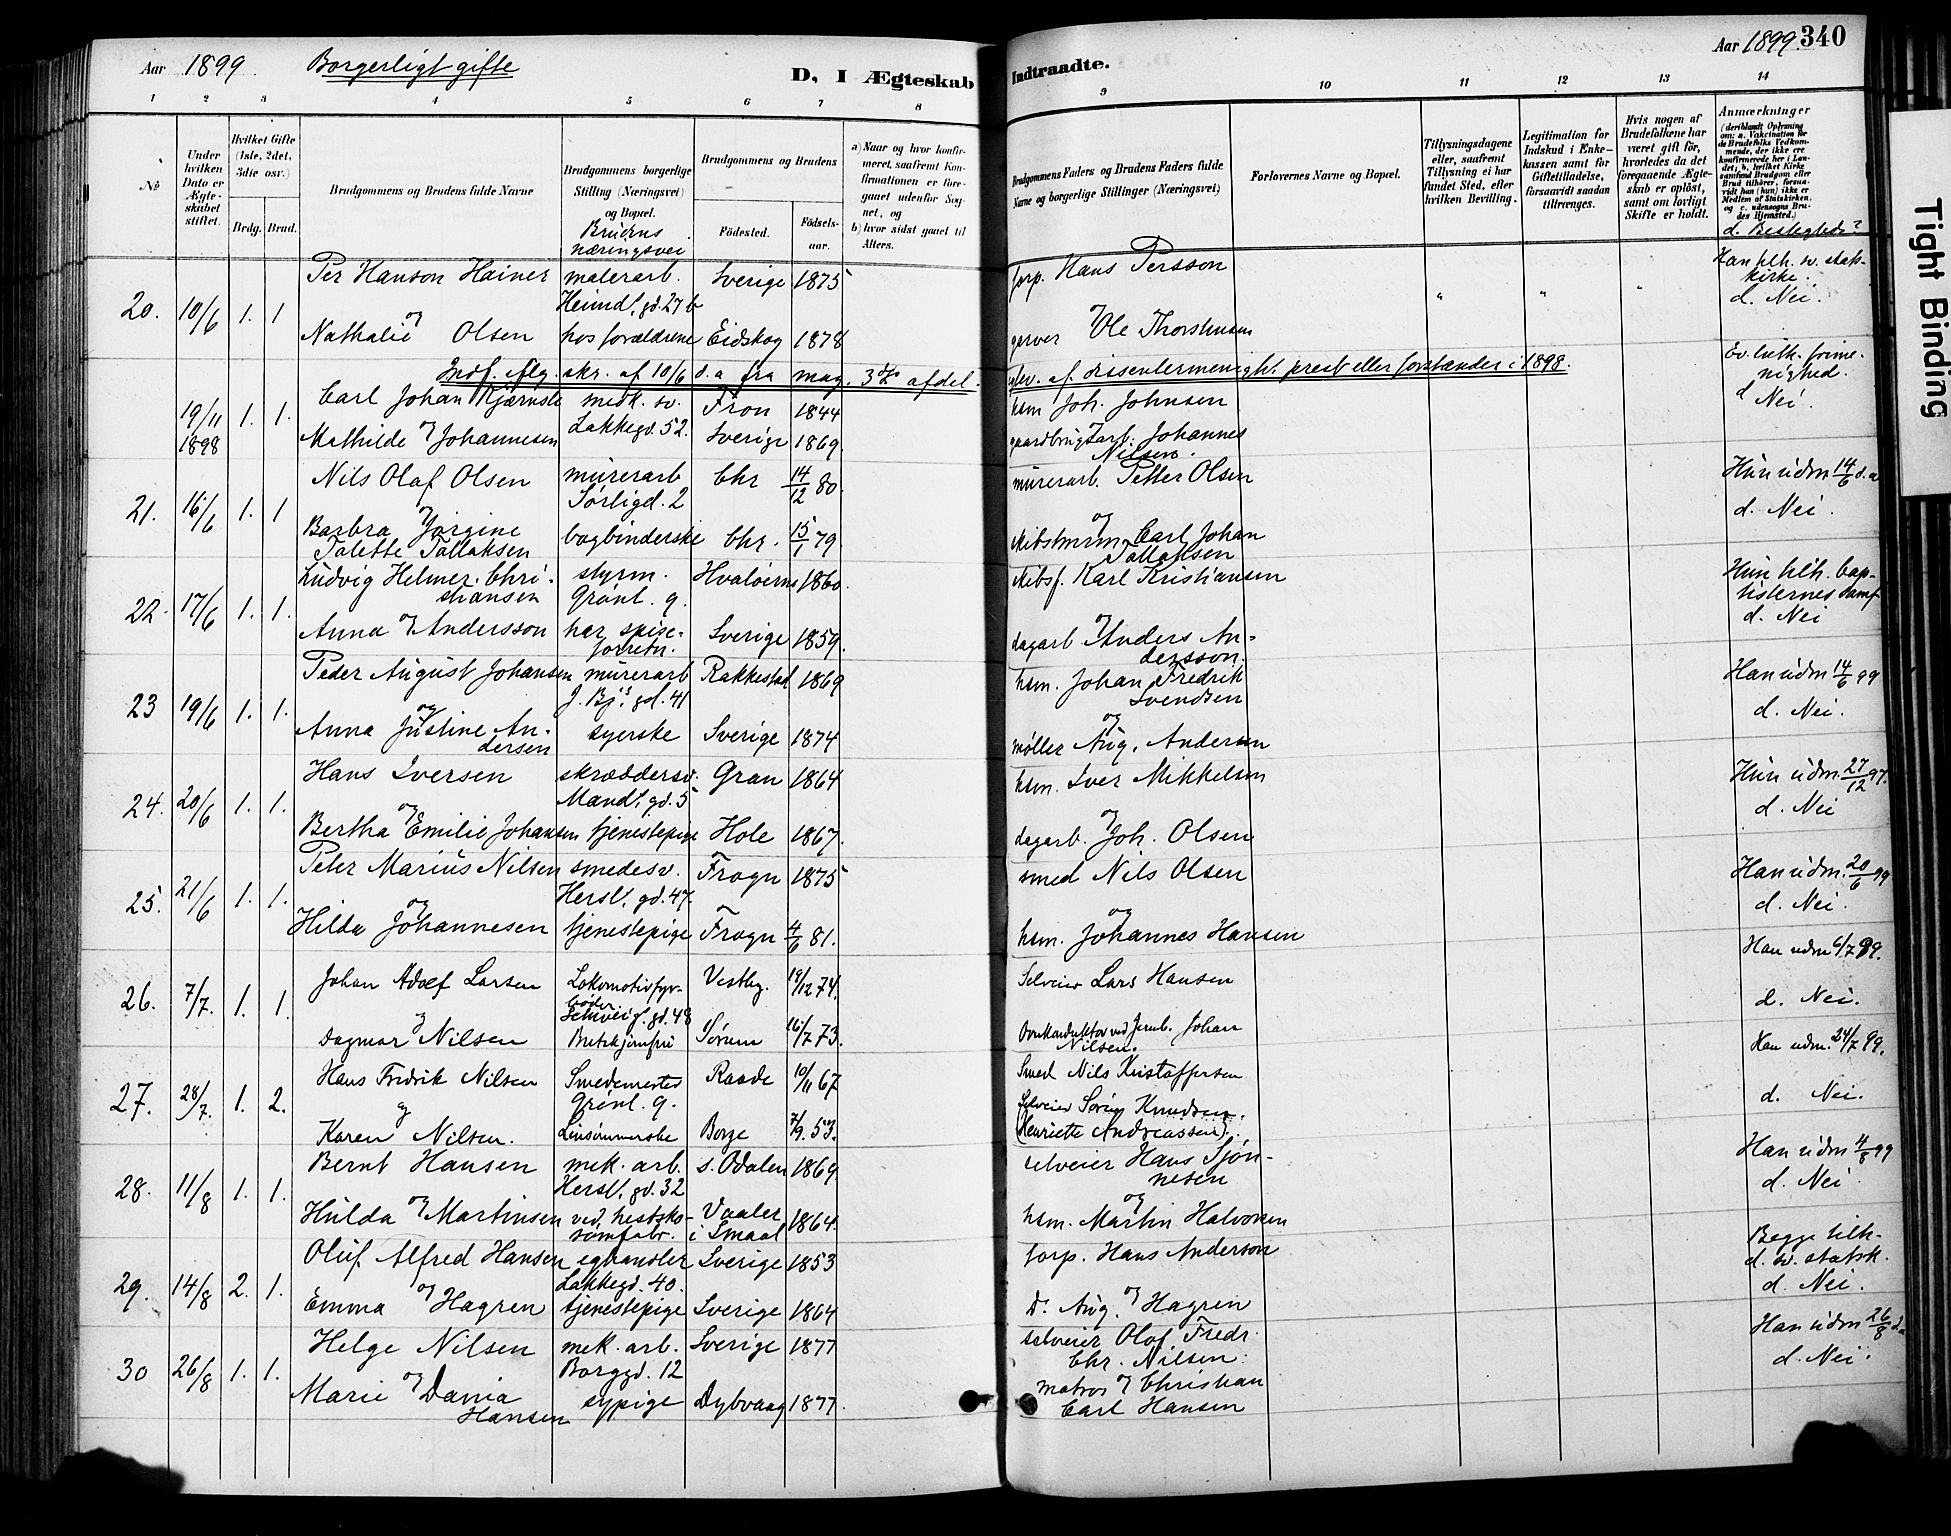 Aar 1899. Borgerligt gifte D, I Ægteskab
Indtraadte. Aar 1899 340
1 2 3 4 5 6 7 8
9 10 11 12 13 14
No
Under hvilken Dato er Ægteskabet stiftet.
Hvilket Gifte (1ste, 2det, 3die osv.)
Brdg. Brud.
Brudgommens og Brudens fulde Navne
Brudgommens borgerlige Stilling (Næringsvei) og Bopæl.
Brudens næringsvei
Brudgommens og Brudens
Fødested. Fødsels-aar.
a) Naar og hvor konfirmeret, saafremt Konfirmationen er foregaaet udenfor Sognet, og
b) hvor sidst gaaet til Alters.
Brudgommens Faders og Brudens Faders fulde Navne og borgerlige Stillinger (Næringsvei)
Forlovernes Navne og Bopæl.
Tillysningsdagene eller, saafremt Tillysning ei har fundet Sted, efter hvilken Bevilling.
Legitimation for Indskud i Enkekassen samt for Giftetilladelse, forsaavidt saadan tiltrænges.
Hvis nogen af Brudefolkene har været gift før, hvorledes da det foregaaende Ægteskab er opløst, samt om lovligt Skifte er holdt.
Anmærkninger
d. Beslegtede?
20. 10/6 1. 1 Per Hanson Hainer malerarb. Sverige 1875
Heimdl. gd. 27 b
og
Nathalie Olsen hos forældrene Eidskog 1878
torp. Hans Persson
Han tilh. sv. statskirke.
d. Nei.
garver Ole Thorstensen
Indf. flg. skr. af 10/6 d. a fra mag. 3die afdel.
af dissentermenigh. prest eller forstander i 1898.
19/11 1898 1. 1. Carl Johan Kjærnsle mek. sv. Fron 1844
Lakkegd. 52.
Mathilde og Johannesen Sverige 1869
hsm Joh. Johnsen
gaardbrug Johannes Nilsen.
Ev. luth. frimenighed.
d Nei.
21. 16/6 1. 1 Nils Olaf Olsen mürerarb Chr 14/12 80.
Sørligd. 2
og
Barbra Jørgine Talette Tallaksen bogbinderske Chr. 15/1 79.
mürerarb. Petter Olsen
og
skibstmrm. Carl Johan Tallaksen
Hun udm 14/6 d. a
d. Nei.
22. 17/6 1. 1. Ludvig Helmer Christiansen styrm. Hvaløerne 1860.
Grønl. 9.
Anna og Andersson har spiseforretn. Sverige 1859.
skibsf. Karl Kristiansen
og
dagarb Anders Andersson.
Hun tilh. baptisternes samf
d. Nei
23 19/6 1. 1. Peder August Johansen mürerarb Rakkestad 1869
J. Bj's gd. 41
og
Anna Justine Andersen syerske Sverige 1874
hsm. Johan Fredrik Svendsen
og
møller Aug. Andersen
Han udm 14/6 99
d. Nei.
24. 20/6 1. 1. Hans Iversen skræddersv. Gran 1864
Mandl. gd. 5
Bertha og Emilie Johansen tjenestepige Hole 1867.
hsm. Iver Mikkelsen
og
dagarb. Joh. Olsen
Hun udm. 27/12 97.
d. Nei
25. 21/6 1. 1. Peter Marius Nilsen smedesv. Frogn 1875
Hersl. gd. 47.
og
Hilda Johannesen tjenestepige Frogn 4/6 81.
smed Nils Olsen
og
hsm. Johannes Hansen
Han udm. 20/6 99
d. Nei.
26. 7/7. 1. 1. Johan Adolf Larsen Lokomotivfyrbøder Vestby. 19/12 74.
Schweig. gd. 48
og
Dagmar Nilsen Sørum 16/7 73.
Selveier Lars Hansen
Ovrkonduktør ved Jernb. Johan Nilsen.
Han udm 6/7 99.
d. Nei.
27. 28/7. 1. 2. Hans Fredrik Nilsen Smedemester Raade 10/11 67
Grønl. 9.
og
Karen Nilsen. Linsømmerske Borge 7/9. 53.
Smed Nils Kristoffersen
Selveier Søren Knudsen.
(Henriette Andreassen).
Han udm. 24/7 99.
d. Nei.
28. 11/8 1. 1. Bernt Hansen mek. arb. s. Odalen 1869
Hersl. gd. 32
Hulda og Martinsen ved hestskosømfabr. Vaaler i Smaal 1864.
selveier Hans Sjønnesen
og
hsm. Martin Halvorsen
Han udm 4/8 99
d. Nei.
29. 14/8 2. 1. Oluf Alfred Hansen eghandler Sverige 1853
Lakkegd. 40.
Emma og Hagren tjenestepige Sverige 1864
torp. Hans Anderson
Do Aug. og Hagren
Begge tilh. d. sv. statsk.
d. Nei.
30 26/8 1. 1. Helge Nilsen mek. arb. Sverige 1877
Borggd. 12
Marie og Dania Hansen sypige Dybvaag 1877.
selveier Olof Fredr. Chr. Nilsen.
matros og Christian Carl Hansen
Han udm 26/8 d. a
d. Nei.
Tight Binding